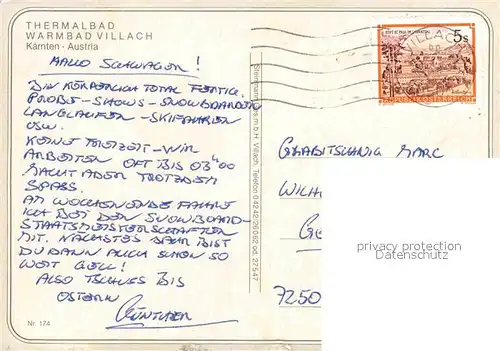 THERMALBAD
WARMBAD VILLACH
Kärnten · Austria
HALLO SCHWAGER!
BIN KÖRPERLICH TOTAL FERTIG.
PROBE - SHOWS - SNOWBOARDEN
LANGLAUFEN - SKIFAHREN
USW.
KEINE FREIZEIT - WIR
ARBEITEN OFT BIS 03°°
MACHT ABER TROTZDEM
SPASS.
AM WOCHENENDE FAHRE
ICH BEI DEN SNOWBOARD-
STAATSMEISTERSCHAFTEN
MIT. NÄCHSTES JAHR BIST
DU DANN AUCH SCHON SO
WEIT GELL!
ALSO TSCHUSS BIS
OSTERN
GÜNTHER
Nr. 174
m.b.H. Villach, Telefon 04242/26062 od. 27547
VILLACH
STIFT ST. PAUL IM LAVANTTAL
5s
REPUBLIK ÖSTERREICH
MARC
privacy protection
7250